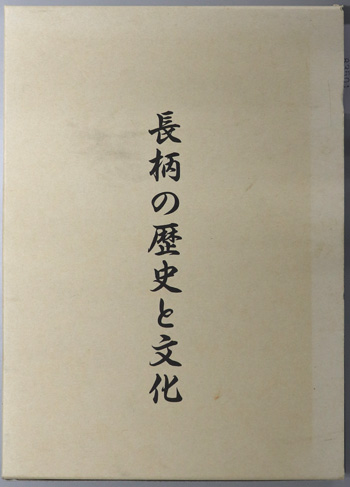 長柄の歴史と文化